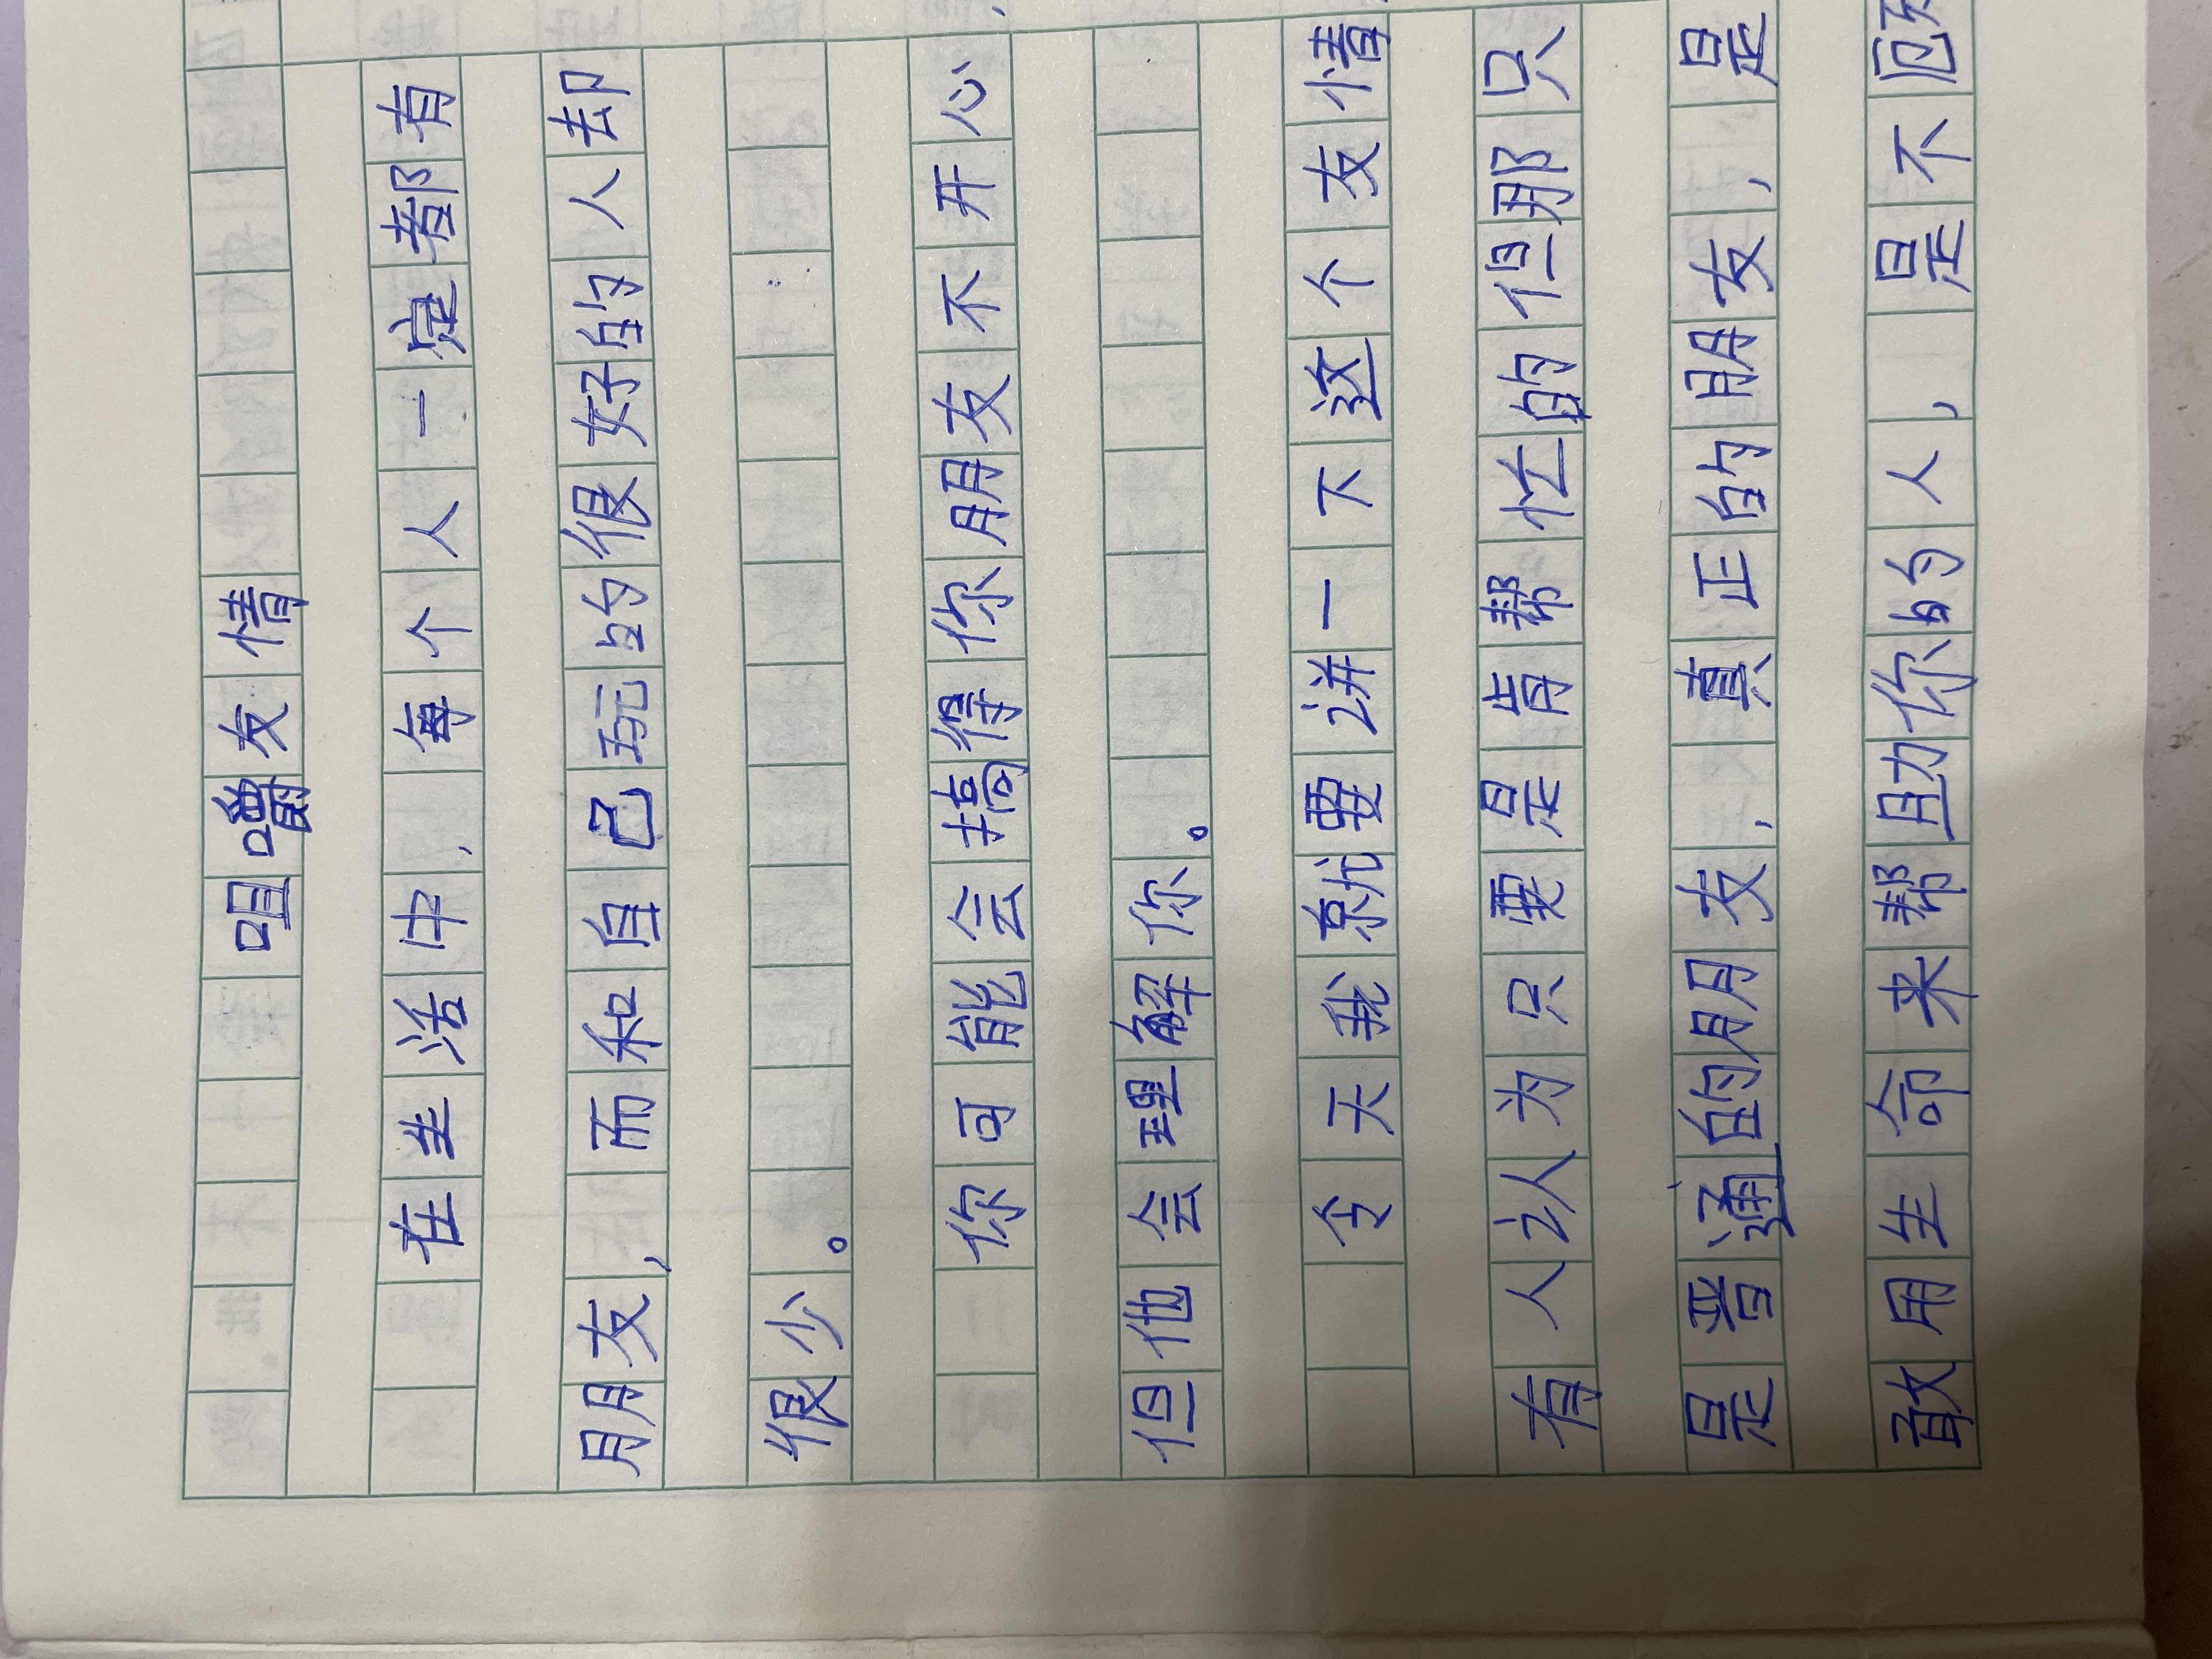 咀嚼友情
在生活中，每个人一定都有
朋友，而和自己玩的很好的人却
很少。
你可能会搞得你朋友不开心
但他会理解你。
今天我就要讲一下这个友情
有人认为只要是肯帮忙的但那只
是普通的朋友，真正的朋友，是
敢用生命来帮助你的人，是不